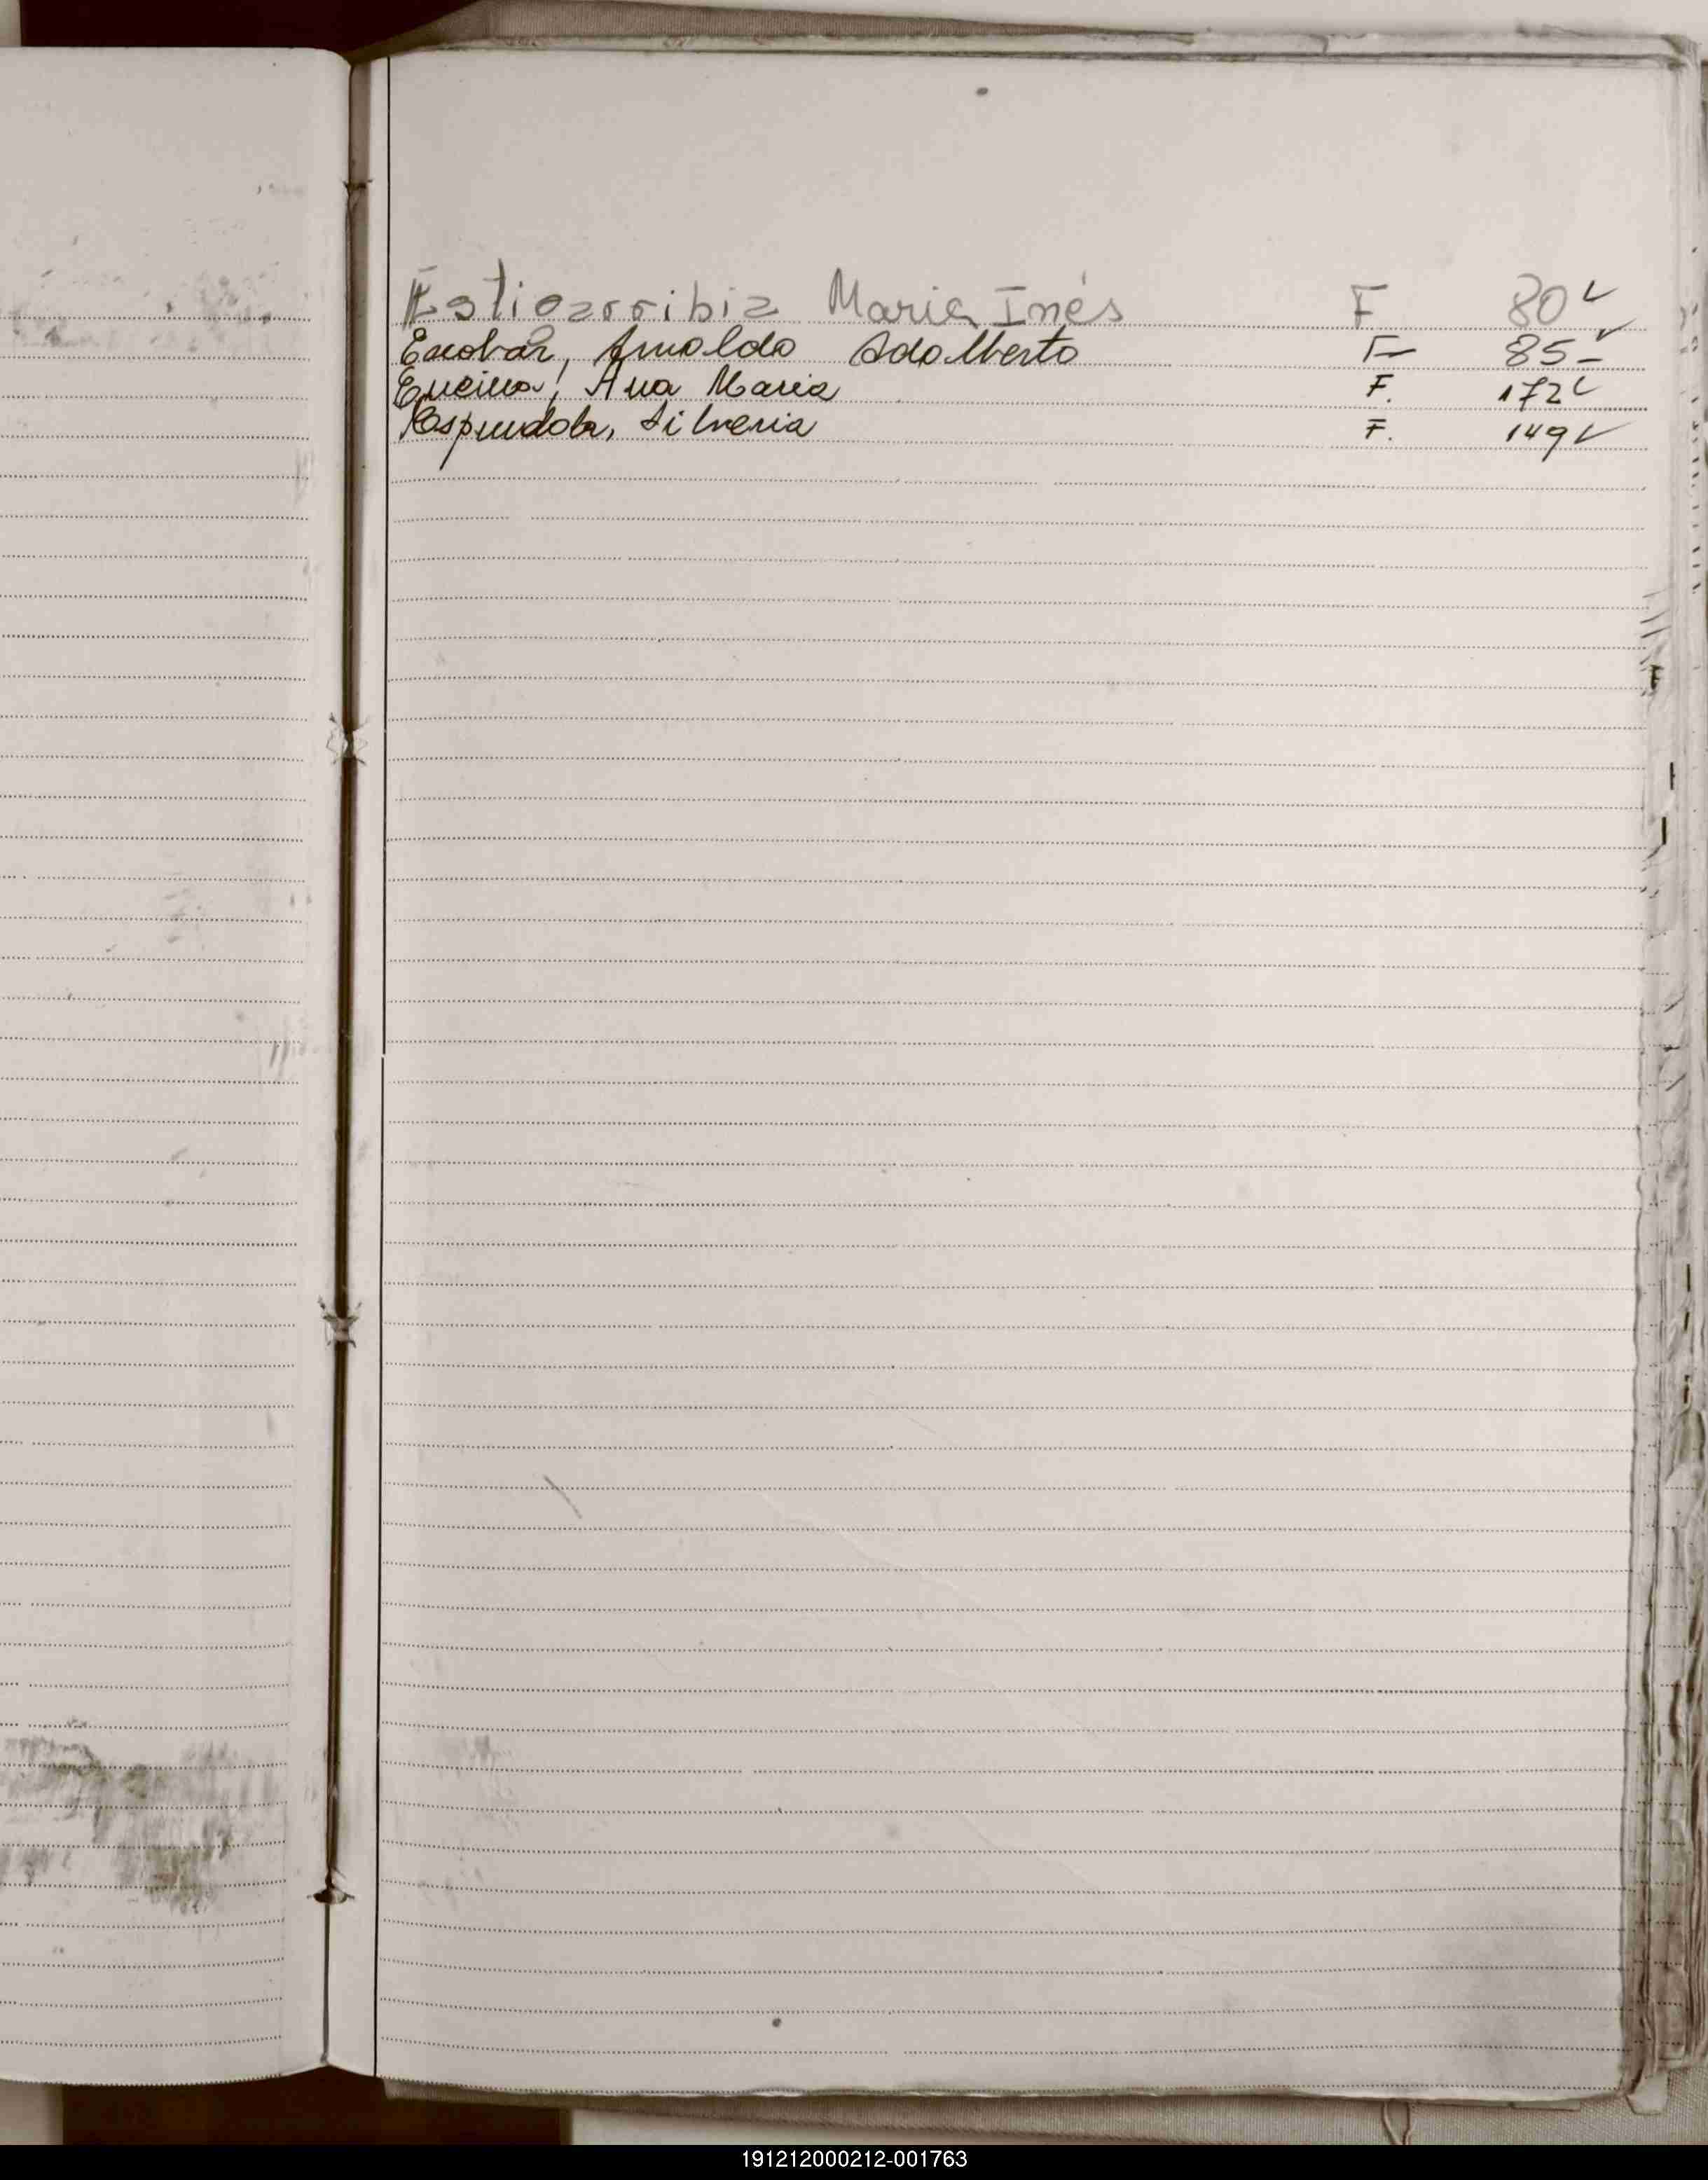 Estigarribia Maria Inés F 80 ✓
Escobar, Arnoldo Adalberto F 85 ✓
Encina, Ana Maria F. 172 ✓
Espindola, Silveria F. 149 ✓
191212000212-001763